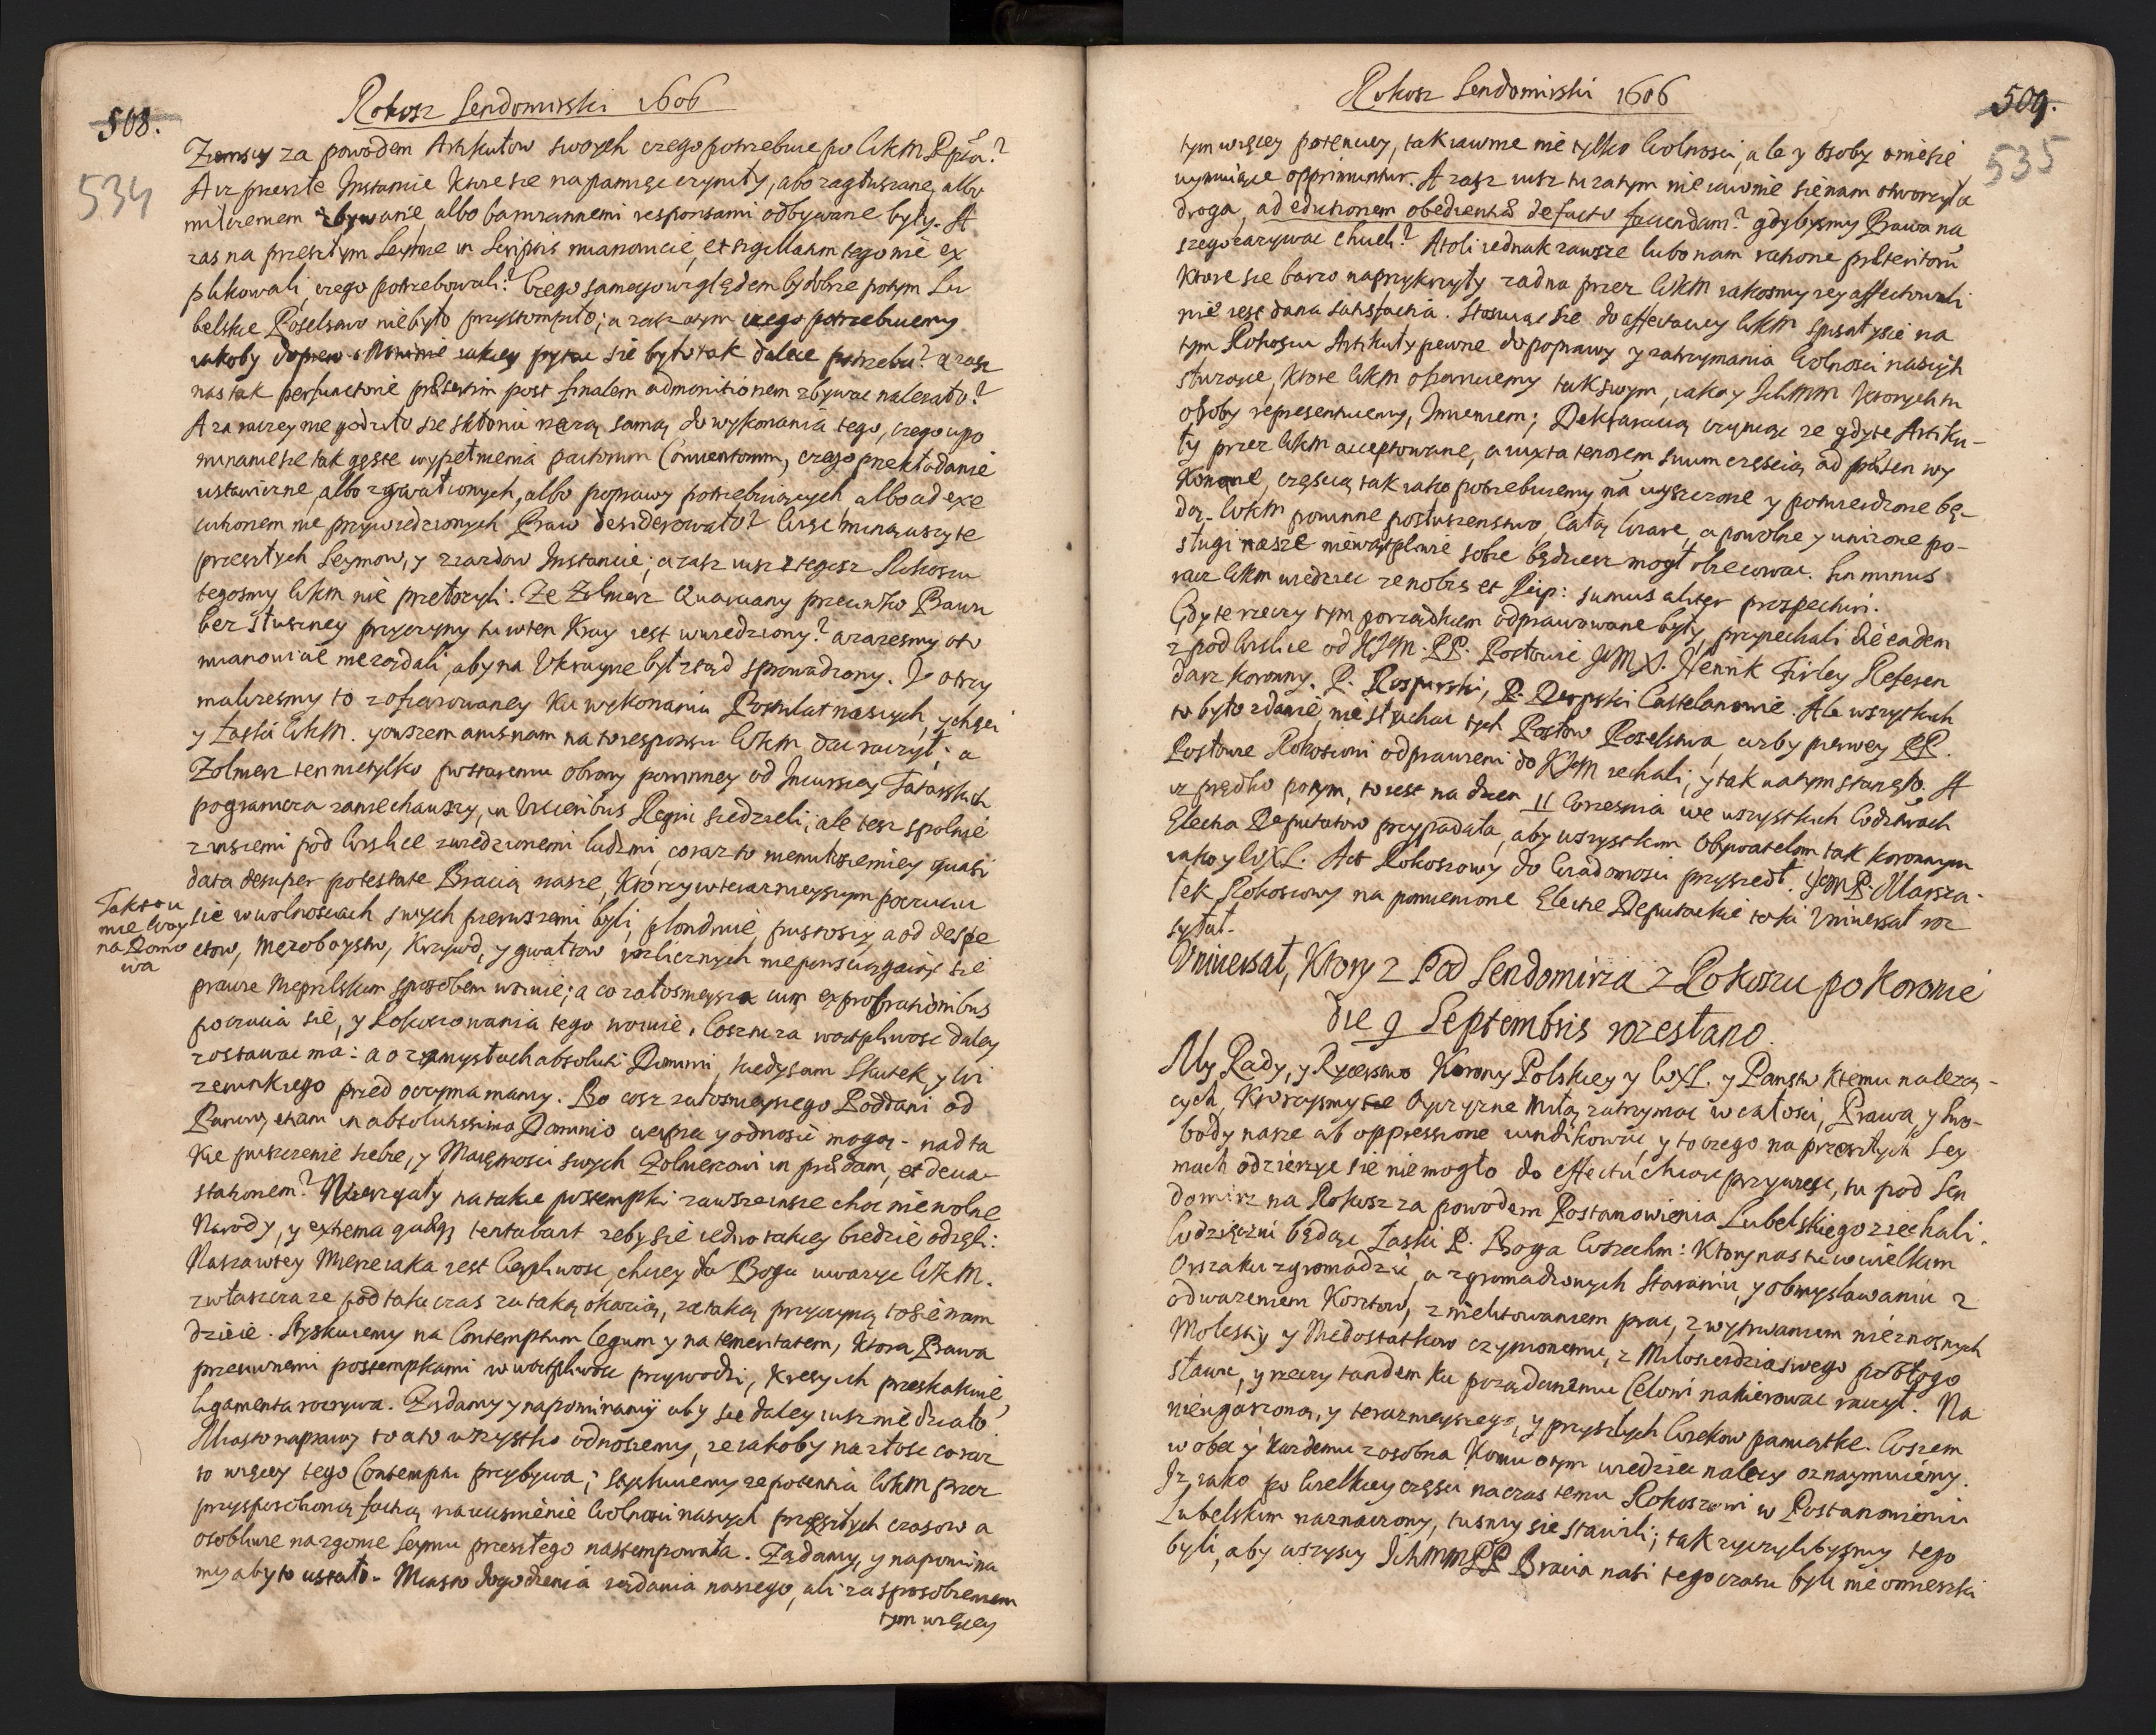 508.
Rokosz Sendomirski 1606
534
Ziemscy za powodem Artikułow swoych czego potrzebuie po WKM Rptă?
A iz przeszłe Instantie ktore sie na pamięc czyniły, abo zagłuszane, albo
milczeniem zbywane, albo bawiannemi responsami odbywane były. A
zas na przeszłym Seymie in Scriptis mianowicie, et sigillatim tego nie ex
plikowali, czego potrzebowali? Czego samego względem by dobrze potym Lu
belskie Poselstwo niebyło przystompiło; a zasz atym czego potrzebuiemy
iakoby dopiero o Nowinie iakiey pytac sie było tak dalece potrzeba? a zasz
nas tak perfunctorie præsertim post finalem admonitionem zbywac nalezało?
A za raczey nie godziło sie skłonic rzeczą samą do wykonania tego, czego upo
minanie sie tak gęste wypełnienia pactorum Conventorum, czego przekładanie
ustawiczne, albo zgwałconych, albo poprawy potrzebuiących albo ad exe
cutionem nie przywiedzionych Praw desiderowało? Wiec minąwszy te
przeszłych Seymow, y ziazdow Instancie; a zasz iusz z tegosz Rokoszu
tegosmy WKM nie przełozyli. Ze Zolnierz Quarciany przeciwko Prawu
bez słuszney przyczyny tu w ten Kray iest wwiedziony? a zazesmy oto
mianowicie nie ządali, aby na Ukrainę był ztąd sprowadzony. I otrzy
malizesmy to z ofiarowaney ku wykonaniu Postulat naszych, y chęci
y Łaski WKM. y owszem anis nam na to responsu WKM dac raczył; a
Zolnierz ten nietylko postaremu obrony powinney od Incursiey Tatarskich
pogranicza zaniechawszy, in Visceribus Regni siedzieli; ale tesz spolnie
z inszemi pod Wislice zwiedzionemi ludzmi, coraz to nieutulzeniey quasi
data desuper potestate Bracią nasze, ktorzy w teraznieyszym poczuciu
sie w wolnosciach swych pierwszemi byli, plondruie, pustoszy, a od despe
ctow, mezoboystw, Krzywd, y gwałtow rozlicznych niepowsciągaiąc sie
prawie Nieprzilskim sposobem woiuie; a co załosnieysza cum exprobrationibus
poczucia sie, y Rokoszowania tego woiuie. Cosz tu za wątpliwosc daley
zostawac ma: a o zamysłach absoluti Dominii, kiedy sam Skutek, y Wi
zerunk iego przed oczyma mamy. Bo cosz załosnieyszego Poddani od
Panow, etiam in absolutissimo Dominio cierpiec y odnosic mogą - nad ta
kie puszczenie siebie, y Maiętnosci swych Zolnierzowi in prædam, et deva-
stationem? Wzierzgały na takie postempki zawsze insze choc nie wolne
Narody, y extrema quæq tentabant zeby sie iedno takiey biedzie odzieli:
Nasza w tey Mierze iaka iest Cierpliwosc, chciey dla Boga uwazyc WKM.
zwłaszcza ze pod taki czas za taką okazią, za taką przyczyną to sie nam
dzieie. Styskuiemy na Contemptum legum y na temeritatem, ktora Prawa
przeciwnemi postempkami w wątpliwosc przywodzi, Kresy ich przeskakuie,
ligamenta rozrywa. Ządamy y napominamy aby sie daley iusz nie działo
Miasto naprawy to ato wszystko odnosiemy, ze iakoby na złosc coraz
to więcey tego Contemptu przybywa; styskuiemy ze potentia WKM przez
przysposobioną fakcią na ucisnienie Wolnosci naszych przeszłych czasow a
osobliwie na zgonie Seymu przeszłego nastempowała. Ządamy, y napomina
my aby to ustało. Miasto dogodzenia ządania naszego, ali za sposobieniem
tym więcey
Tak to u
nie Woy
na Domo
wa
Rokosz Sendomirski 1606
509.
535
tym więcey potenciey, tak iawnie nie tylko Wolnosci, ale y Osoby o nie sie
uymuiące opprimuntur. A zasz iusz tu zatym nie iawnie sie nam otworzyła
droga, ad eductionem obedientiæ de facto faciendam? gdybysmy Prawa na
szego zazywac chcieli? Atoli iednak zawsze lubo nam ratione præteritorũ
ktore sie barzo naprzykrzyły zadna przez WKM iakosmy iey affectowali
nie iest dana satisfactia. Stosuiąc sie do affectaciey WKM spisały sie na
tym Rokoszu Artikuły pewne do poprawy y zatrzymania Wolnosci naszych
słuzące, ktore WKM ofiaruiemy tak swym, iako y Ichmm ktorych tu
osoby representuiemy, Imieniem; Deklaracią czyniąc ze gdy te Artiku-
ły przez WKM acceptowane, a iuxta tenorem suum częscią ad præsen wy
konane, częscią tak iako potrzebuiemy na uiszczone y potwierdzone bę-
dą. WKM powinne posłuszenstwo, całą Wiarę, a powolne y unizone po-
sługi nasze niewątpliwie sobie będziesz mogł obiecowac. Sin minus
racz WKM wiedziec ze nobis et Reip: sumus aliter prospecturi.
Gdy te rzeczy tym porządkiem odprawowane były, przyiechali die eadem
z pod Wislice od KJM. PP. Posłowie JeM X. Henrik Firley Referen
darz Koronny. P. Rosperski, P. Derpski Castelanowie. Ale wszystkich
to było zdanie, nie słuchac tych Posłow Poselstwa, azby pierwey PP.
Posłowie Rokoszowi odprawieni do KJM iechali; y tak na tym stanęło. A
iz prędko potym, to iest na dzien 11 Wrzesnia we wszystkich Wodztwach
Elecia Deputatow przypadała, aby wszystkim Obywatelom tak koronnym
iako y WXL. Act Rokoszowy do Wiadomosci przyszedł. JemP. Marsza-
łek Rokoszowy na pomienione Electie Deputackie taki Vniwersał roz
syłał.
Vniwersał, Ktory z Pod Sendomirza z Rokoszu po Koronie
die 9 Septembris rozesłano.
My Rady, y Rycerstwo Korony Polskiey y WXL. y Panstw ktemu nalezą-
cych, Ktorzysmy sie Oyczyzne miłą zatrzymac w całosci, Prawa, y Swo-
body nasze ab oppressione vindikowac, y to czego na przeszłych Sey
mach odzierzyc sie niemogło do effectu chcąc przywiesc, tu pod Sen
domirz na Rokosz za powodem Postanowienia Lubelskiego ziechali.
Wdzięczni będąc Łaski P. Boga Wszechm: Ktory nas tu w wielkim
Orszaku zgromadzic, a zgromadzonych Staraniu, y obmyslawaniu z
odwazeniem Kosztow, z nielitowaniem prac, z wytrwaniem nieznosnych
Molestiy y Niedostatkow czynionemu, z Miłosierdzia swego pobłogo
sławic, y rzeczy tandem ku pożądanemu Celowi nakierowac raczył. Na
nieugaszoną, y teraznieyszego, y przyszłych Wiekow pamiątke. Wszem
w obec y kazdemu zosobna Komu o tym wiedziec nalezy oznaymuiemy.
Iz, iako po Wielkiey części na czas temu Rokoszowi w Postanowieniu
Lubelskim naznaczony, tusmy sie stawili; tak zyczylibysmy tego
byli, aby wszyscy IchmmPP Bracia nasi tego czasu byli nie omieszki